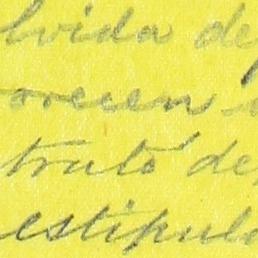 lvida de
orecen
truto de
estipula